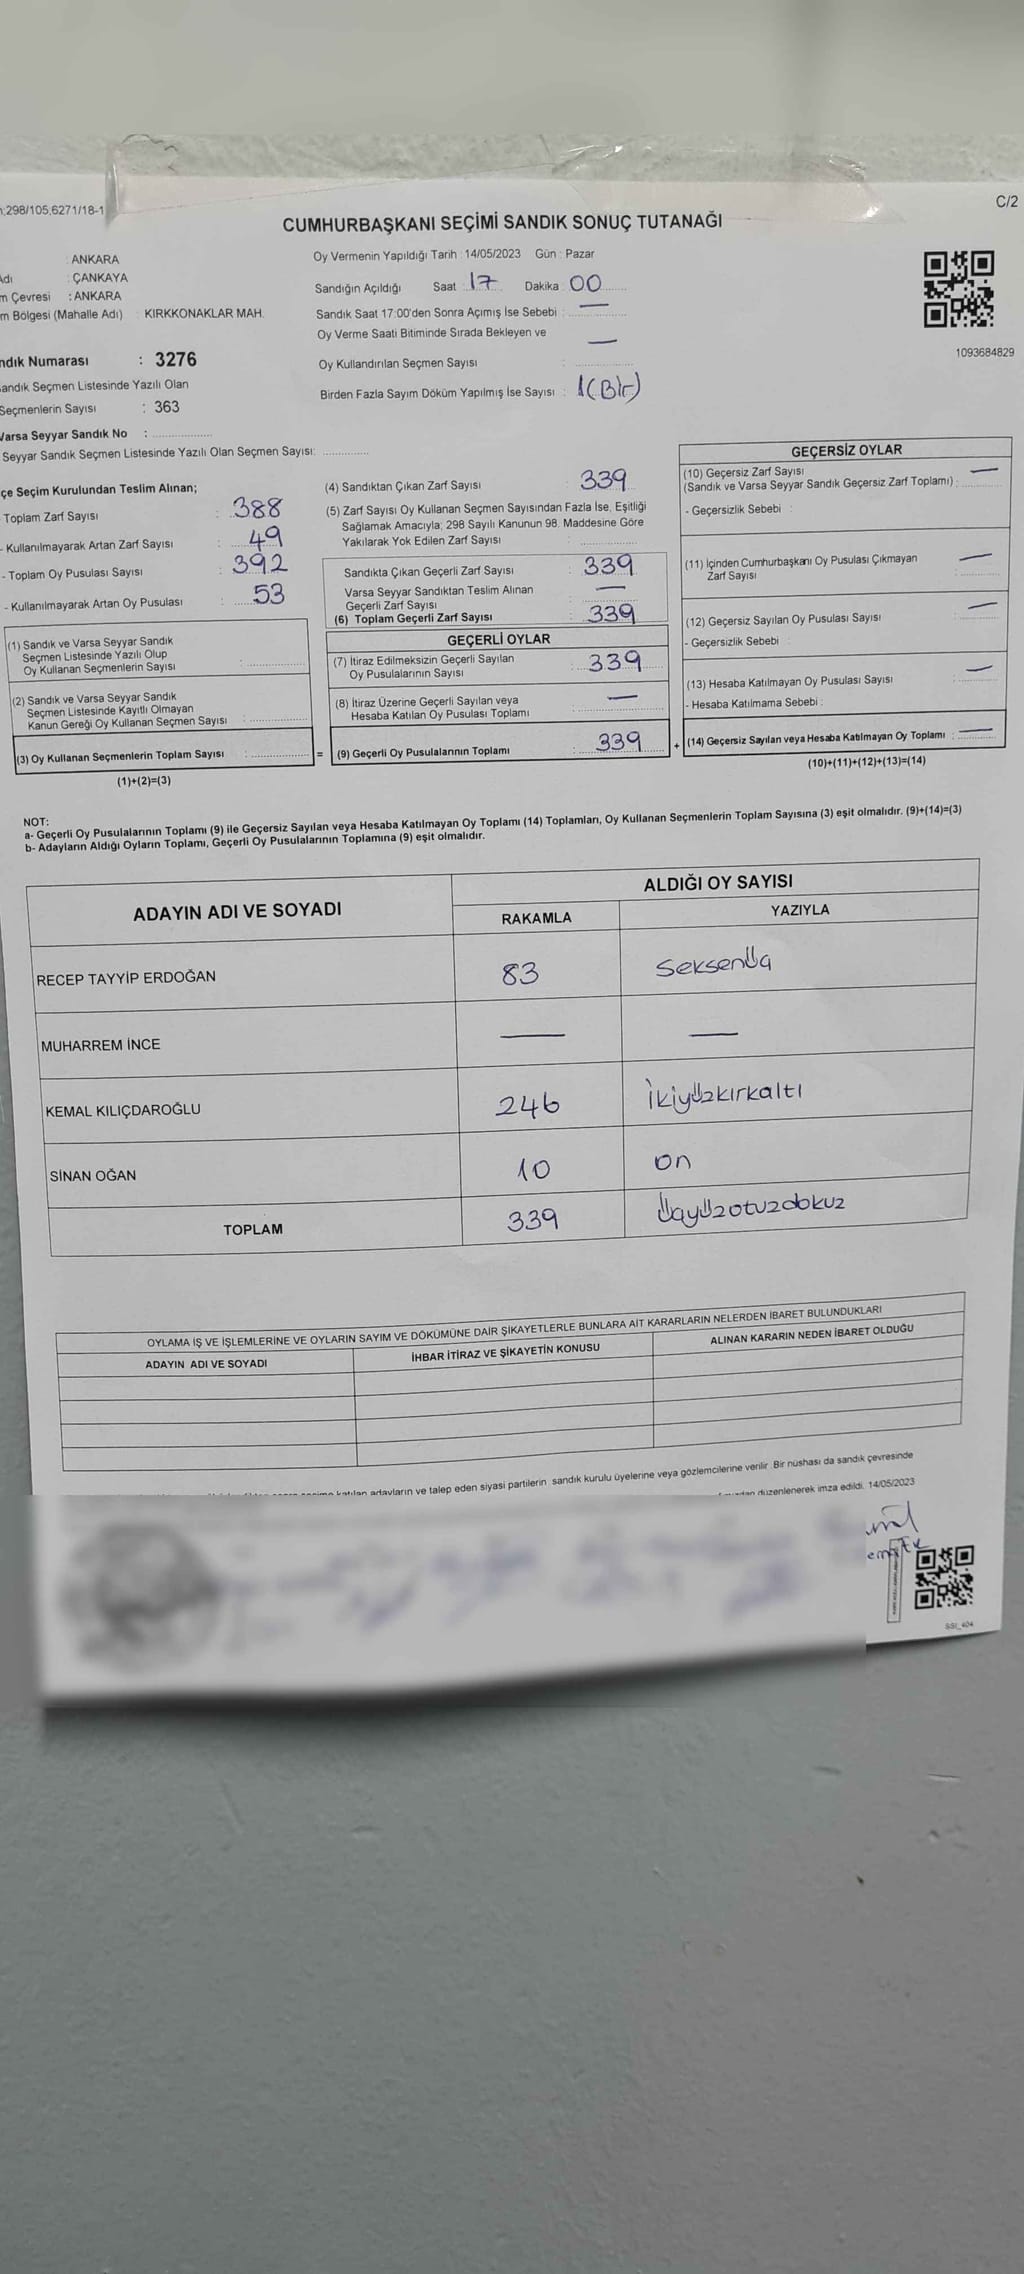 298/105,6271/18-1
C/2
CUMHURBAŞKANI SEÇİMİ SANDIK SONUÇ TUTANAĞI
: ANKARA
: ÇANKAYA
Çevresi : ANKARA
Bölgesi (Mahalle Adı) KIRKKONAKLAR MAH.
Numarası : 3276
Sandık Seçmen Listesinde Yazılı Olan
Seçmenlerin Sayısı : 363
Varsa Seyyar Sandık No :
Seyyar Sandık Seçmen Listesinde Yazılı Olan Seçmen Sayısı:
Oy Vermenin Yapıldığı Tarih : 14/05/2023 Gün : Pazar
Sandığın Açıldığı Saat : 17 Dakika : 00
Sandık Saat 17:00'den Sonra Açımış İse Sebebi : —
Oy Verme Saati Bitiminde Sırada Bekleyen ve
Oy Kullandırılan Seçmen Sayısı : —
Birden Fazla Sayım Döküm Yapılmış İse Sayısı : 1(Bir)
1093684829
Seçim Kurulundan Teslim Alınan;
- Toplam Zarf Sayısı : 388
- Kullanılmayarak Artan Zarf Sayısı : 49
- Toplam Oy Pusulası Sayısı : 392
- Kullanılmayarak Artan Oy Pusulası : 53
(1) Sandık ve Varsa Seyyar Sandık
Seçmen Listesinde Yazılı Olup
Oy Kullanan Seçmenlerin Sayısı :
(2) Sandık ve Varsa Seyyar Sandık
Seçmen Listesinde Kayıtlı Olmayan
Kanun Gereği Oy Kullanan Seçmen Sayısı :
(3) Oy Kullanan Seçmenlerin Toplam Sayısı :
(1)+(2)=(3)
(4) Sandıktan Çıkan Zarf Sayısı : 339
(5) Zarf Sayısı Oy Kullanan Seçmen Sayısından Fazla İse, Eşitliği
Sağlamak Amacıyla; 298 Sayılı Kanunun 98. Maddesine Göre
Yakılarak Yok Edilen Zarf Sayısı :
Sandıkta Çıkan Geçerli Zarf Sayısı : 339
Varsa Seyyar Sandıktan Teslim Alınan
Geçerli Zarf Sayısı : —
(6) Toplam Geçerli Zarf Sayısı : 339
GEÇERLİ OYLAR
(7) İtiraz Edilmeksizin Geçerli Sayılan
Oy Pusulalarının Sayısı : 339
(8) İtiraz Üzerine Geçerli Sayılan veya
Hesaba Katılan Oy Pusulası Toplamı : —
= (9) Geçerli Oy Pusulalarının Toplamı : 339
GEÇERSİZ OYLAR
(10) Geçersiz Zarf Sayısı
(Sandık ve Varsa Seyyar Sandık Geçersiz Zarf Toplamı) : —
- Geçersizlik Sebebi :
(11) İçinden Cumhurbaşkanı Oy Pusulası Çıkmayan
Zarf Sayısı : —
(12) Geçersiz Sayılan Oy Pusulası Sayısı : —
- Geçersizlik Sebebi :
(13) Hesaba Katılmayan Oy Pusulası Sayısı : —
- Hesaba Katılmama Sebebi :
+ (14) Geçersiz Sayılan veya Hesaba Katılmayan Oy Toplamı : —
(10)+(11)+(12)+(13)=(14)
NOT:
a- Geçerli Oy Pusulalarının Toplamı (9) ile Geçersiz Sayılan veya Hesaba Katılmayan Oy Toplamı (14) Toplamları, Oy Kullanan Seçmenlerin Toplam Sayısına (3) eşit olmalıdır. (9)+(14)=(3)
b- Adayların Aldığı Oyların Toplamı, Geçerli Oy Pusulalarının Toplamına (9) eşit olmalıdır.
ADAYIN ADI VE SOYADI ALDIĞI OY SAYISI
RAKAMLA YAZIYLA
RECEP TAYYİP ERDOĞAN 83 Seksenüç
MUHARREM İNCE — —
KEMAL KILIÇDAROĞLU 246 İkiyüzkırkaltı
SİNAN OĞAN 10 on
TOPLAM 339 Üçyüzotuzdokuz
OYLAMA İŞ VE İŞLEMLERİNE VE OYLARIN SAYIM VE DÖKÜMÜNE DAİR ŞİKAYETLERLE BUNLARA AİT KARARLARIN NELERDEN İBARET BULUNDUKLARI
ADAYIN ADI VE SOYADI İHBAR İTİRAZ VE ŞİKAYETİN KONUSU ALINAN KARARIN NEDEN İBARET OLDUĞU
katılan adayların ve talep eden siyasi partilerin sandık kurulu üyelerine veya gözlemcilerine verilir. Bir nüshası da sandık çevresinde
düzenlenerek imza edildi. 14/05/2023
SSI_404